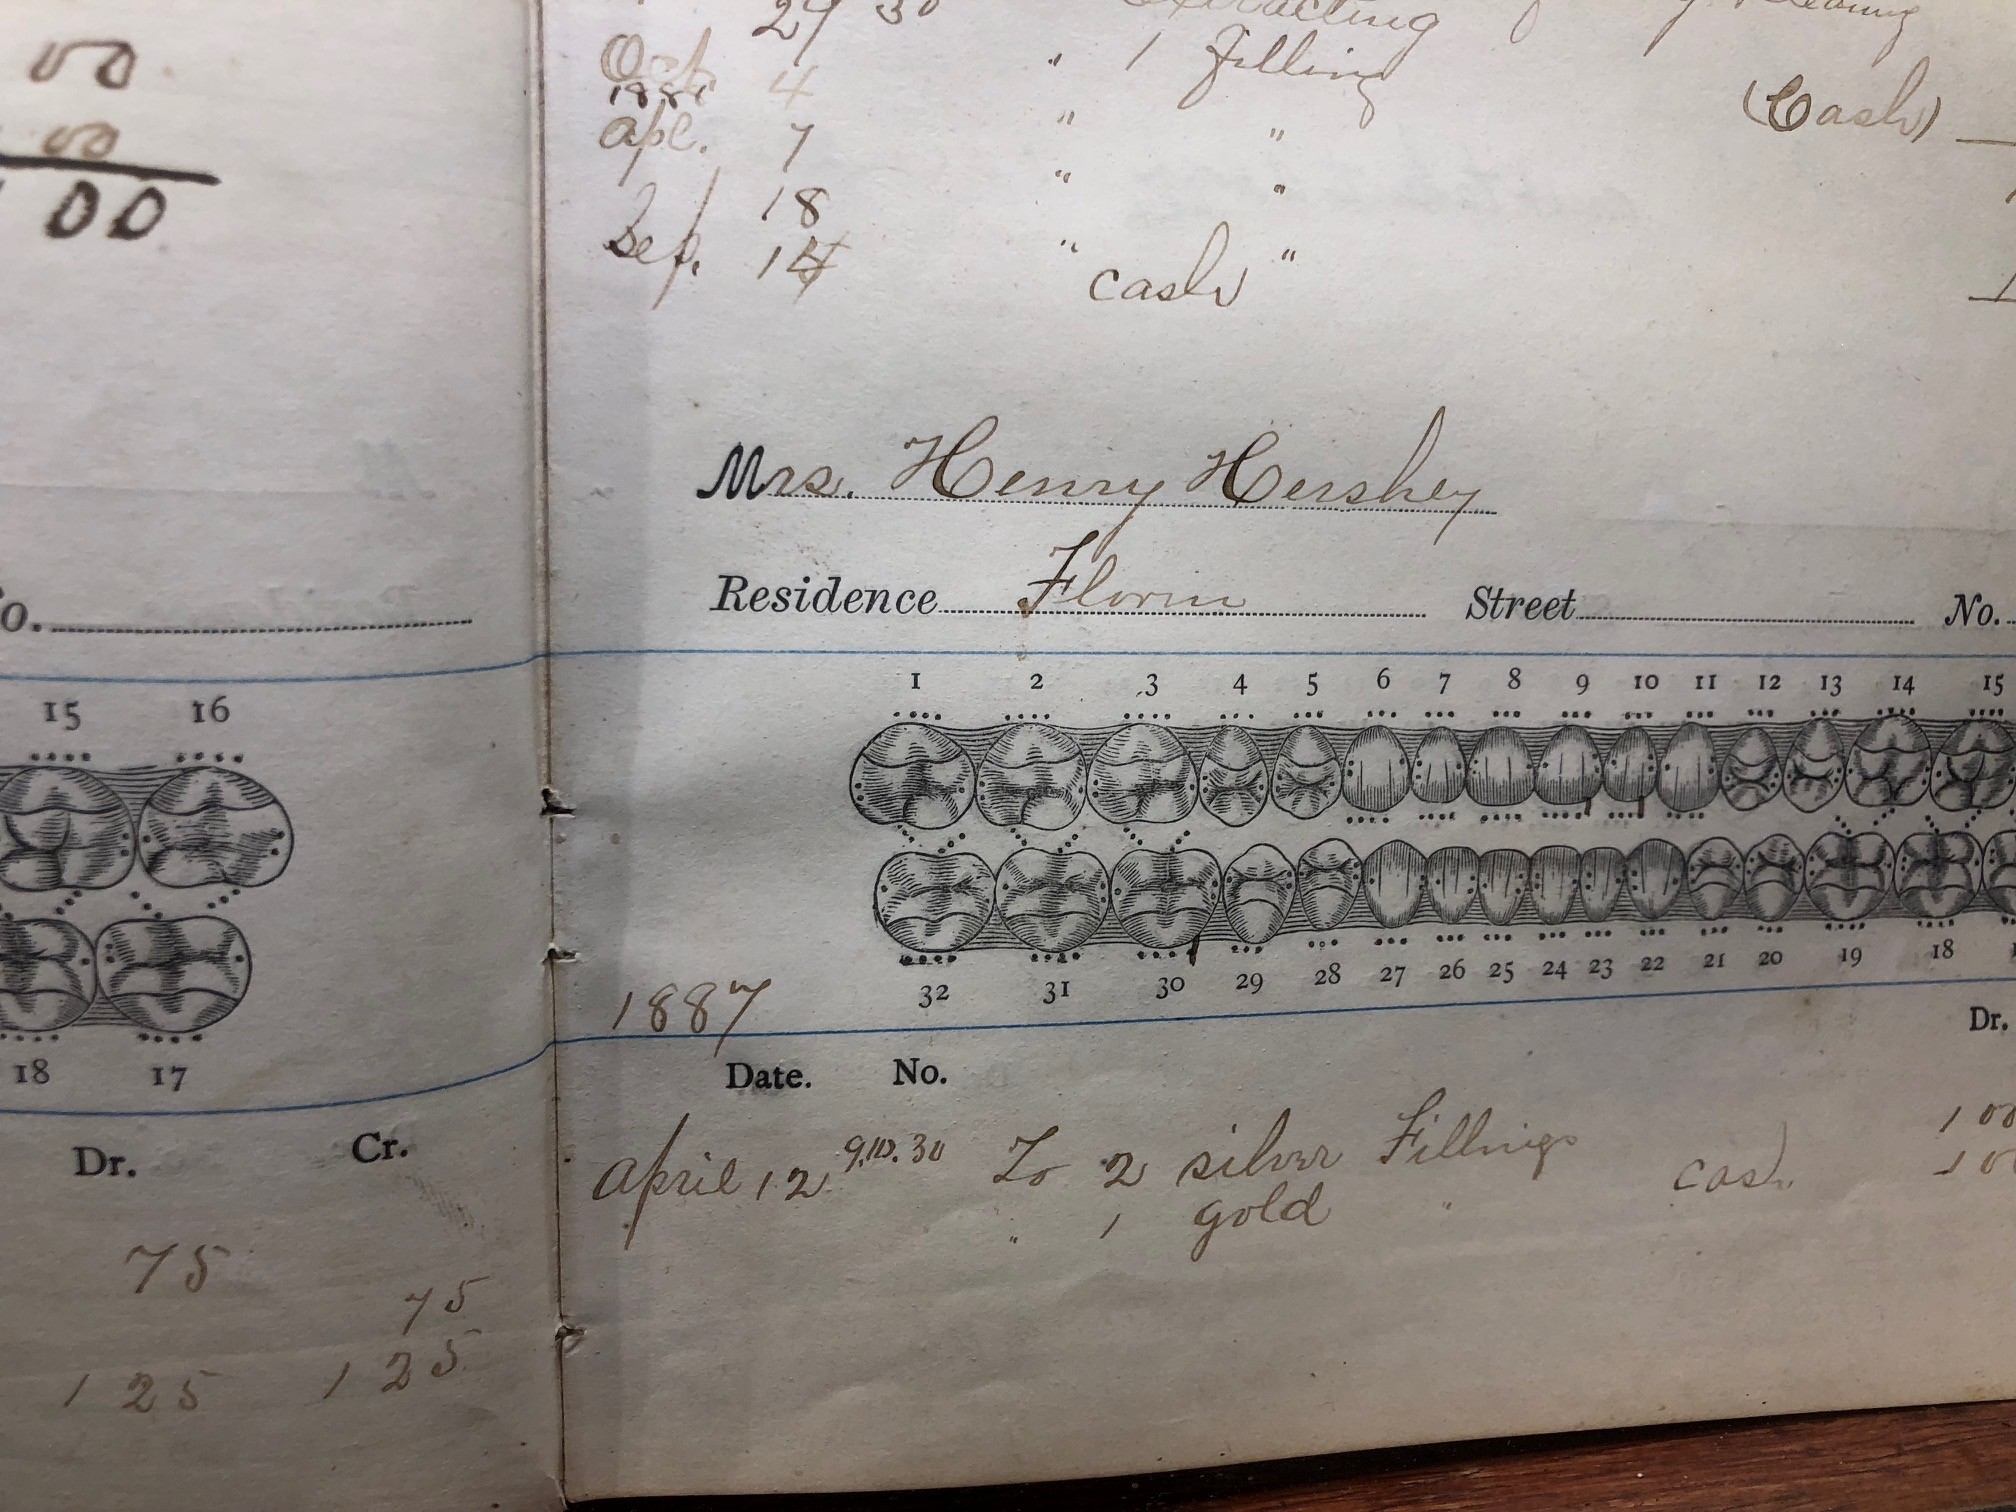 00
00
00
o.
15 16
18 17
Dr. Cr.
75
75
1 25 1 25
29 30 Extracting
Oct. 4 " 1 Filling
188
Apl. 7 " " (Cash)
18 " "
Sep. 14 " "
cash
Mrs. Henry Hershey
Residence Florin Street No.
1 2 3 4 5 6 7 8 9 10 11 12 13 14 15
32 31 30 29 28 27 26 25 24 23 22 21 20 19 18
1887
Dr.
Date. No.
April 12 9,10.30 To 2 silver Fillings 1 00
" 1 gold " cash 1 00